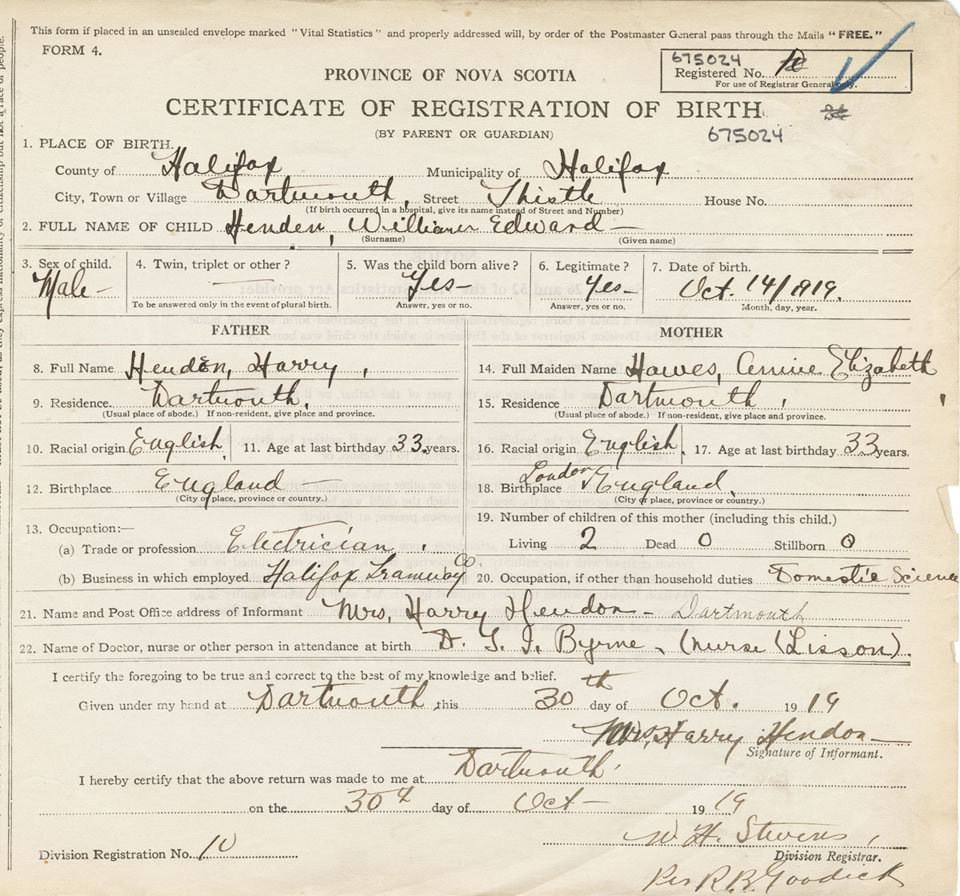 This form if placed in an unsealed envelope marked "Vital Statistics" and properly addressed will, by order of the Postmaster General pass through the Mails "FREE."
FORM 4.
675024
Registered No. 10
For use of Registrar General only.
PROVINCE OF NOVA SCOTIA
CERTIFICATE OF REGISTRATION OF BIRTH
(BY PARENT OR GUARDIAN)
675024
1. PLACE OF BIRTH.
County of Halifax Municipality of Halifax
City, Town or Village Dartmouth, Street Thistle House No.
(If birth occurred in a hospital, give its name instead of Street and Number)
2. FULL NAME OF CHILD Henden, William Edward—
(Surname) (Given name)
3. Sex of child. 4. Twin, triplet or other? 5. Was the child born alive? 6. Legitimate? 7. Date of birth.
Male— — Yes— Yes— Oct. 14/1919.
To be answered only in the event of plural birth. Answer, yes or no. Answer, yes or no. Month, day, year.
FATHER MOTHER
8. Full Name Henden, Harry, 14. Full Maiden Name Hawes, Annie Elizabeth
9. Residence. Dartmouth, 15. Residence Dartmouth,
(Usual place of abode.) If non-resident, give place and province. (Usual place of abode.) If non-resident, give place and province.
10. Racial origin English, 11. Age at last birthday 33 years. 16. Racial origin English. 17. Age at last birthday 33 years.
12. Birthplace England 18. Birthplace London England,
(City or place, province or country.) (City or place, province or country.)
13. Occupation:— 19. Number of children of this mother (including this child.)
(a) Trade or profession Electrician. Living 2 Dead 0 Stillborn 0
(b) Business in which employed Halifax Tramway Co 20. Occupation, if other than household duties Domestic Science
21. Name and Post Office address of Informant Mrs, Harry Hendon— Dartmouth
22. Name of Doctor, nurse or other person in attendance at birth Byrne, (nurse (Lisson).
I certify the foregoing to be true and correct to the best of my knowledge and belief.
Given under my hand at Dartmouth this 30th day of Oct. 1919
Mrs, Harry Hendon—
Signature of Informant.
I hereby certify that the above return was made to me at Dartmouth.
on the 30th day of Oct— 1919
W H. Stevens,
Division Registration No. 10 Division Registrar.
Per R. B. Goodick